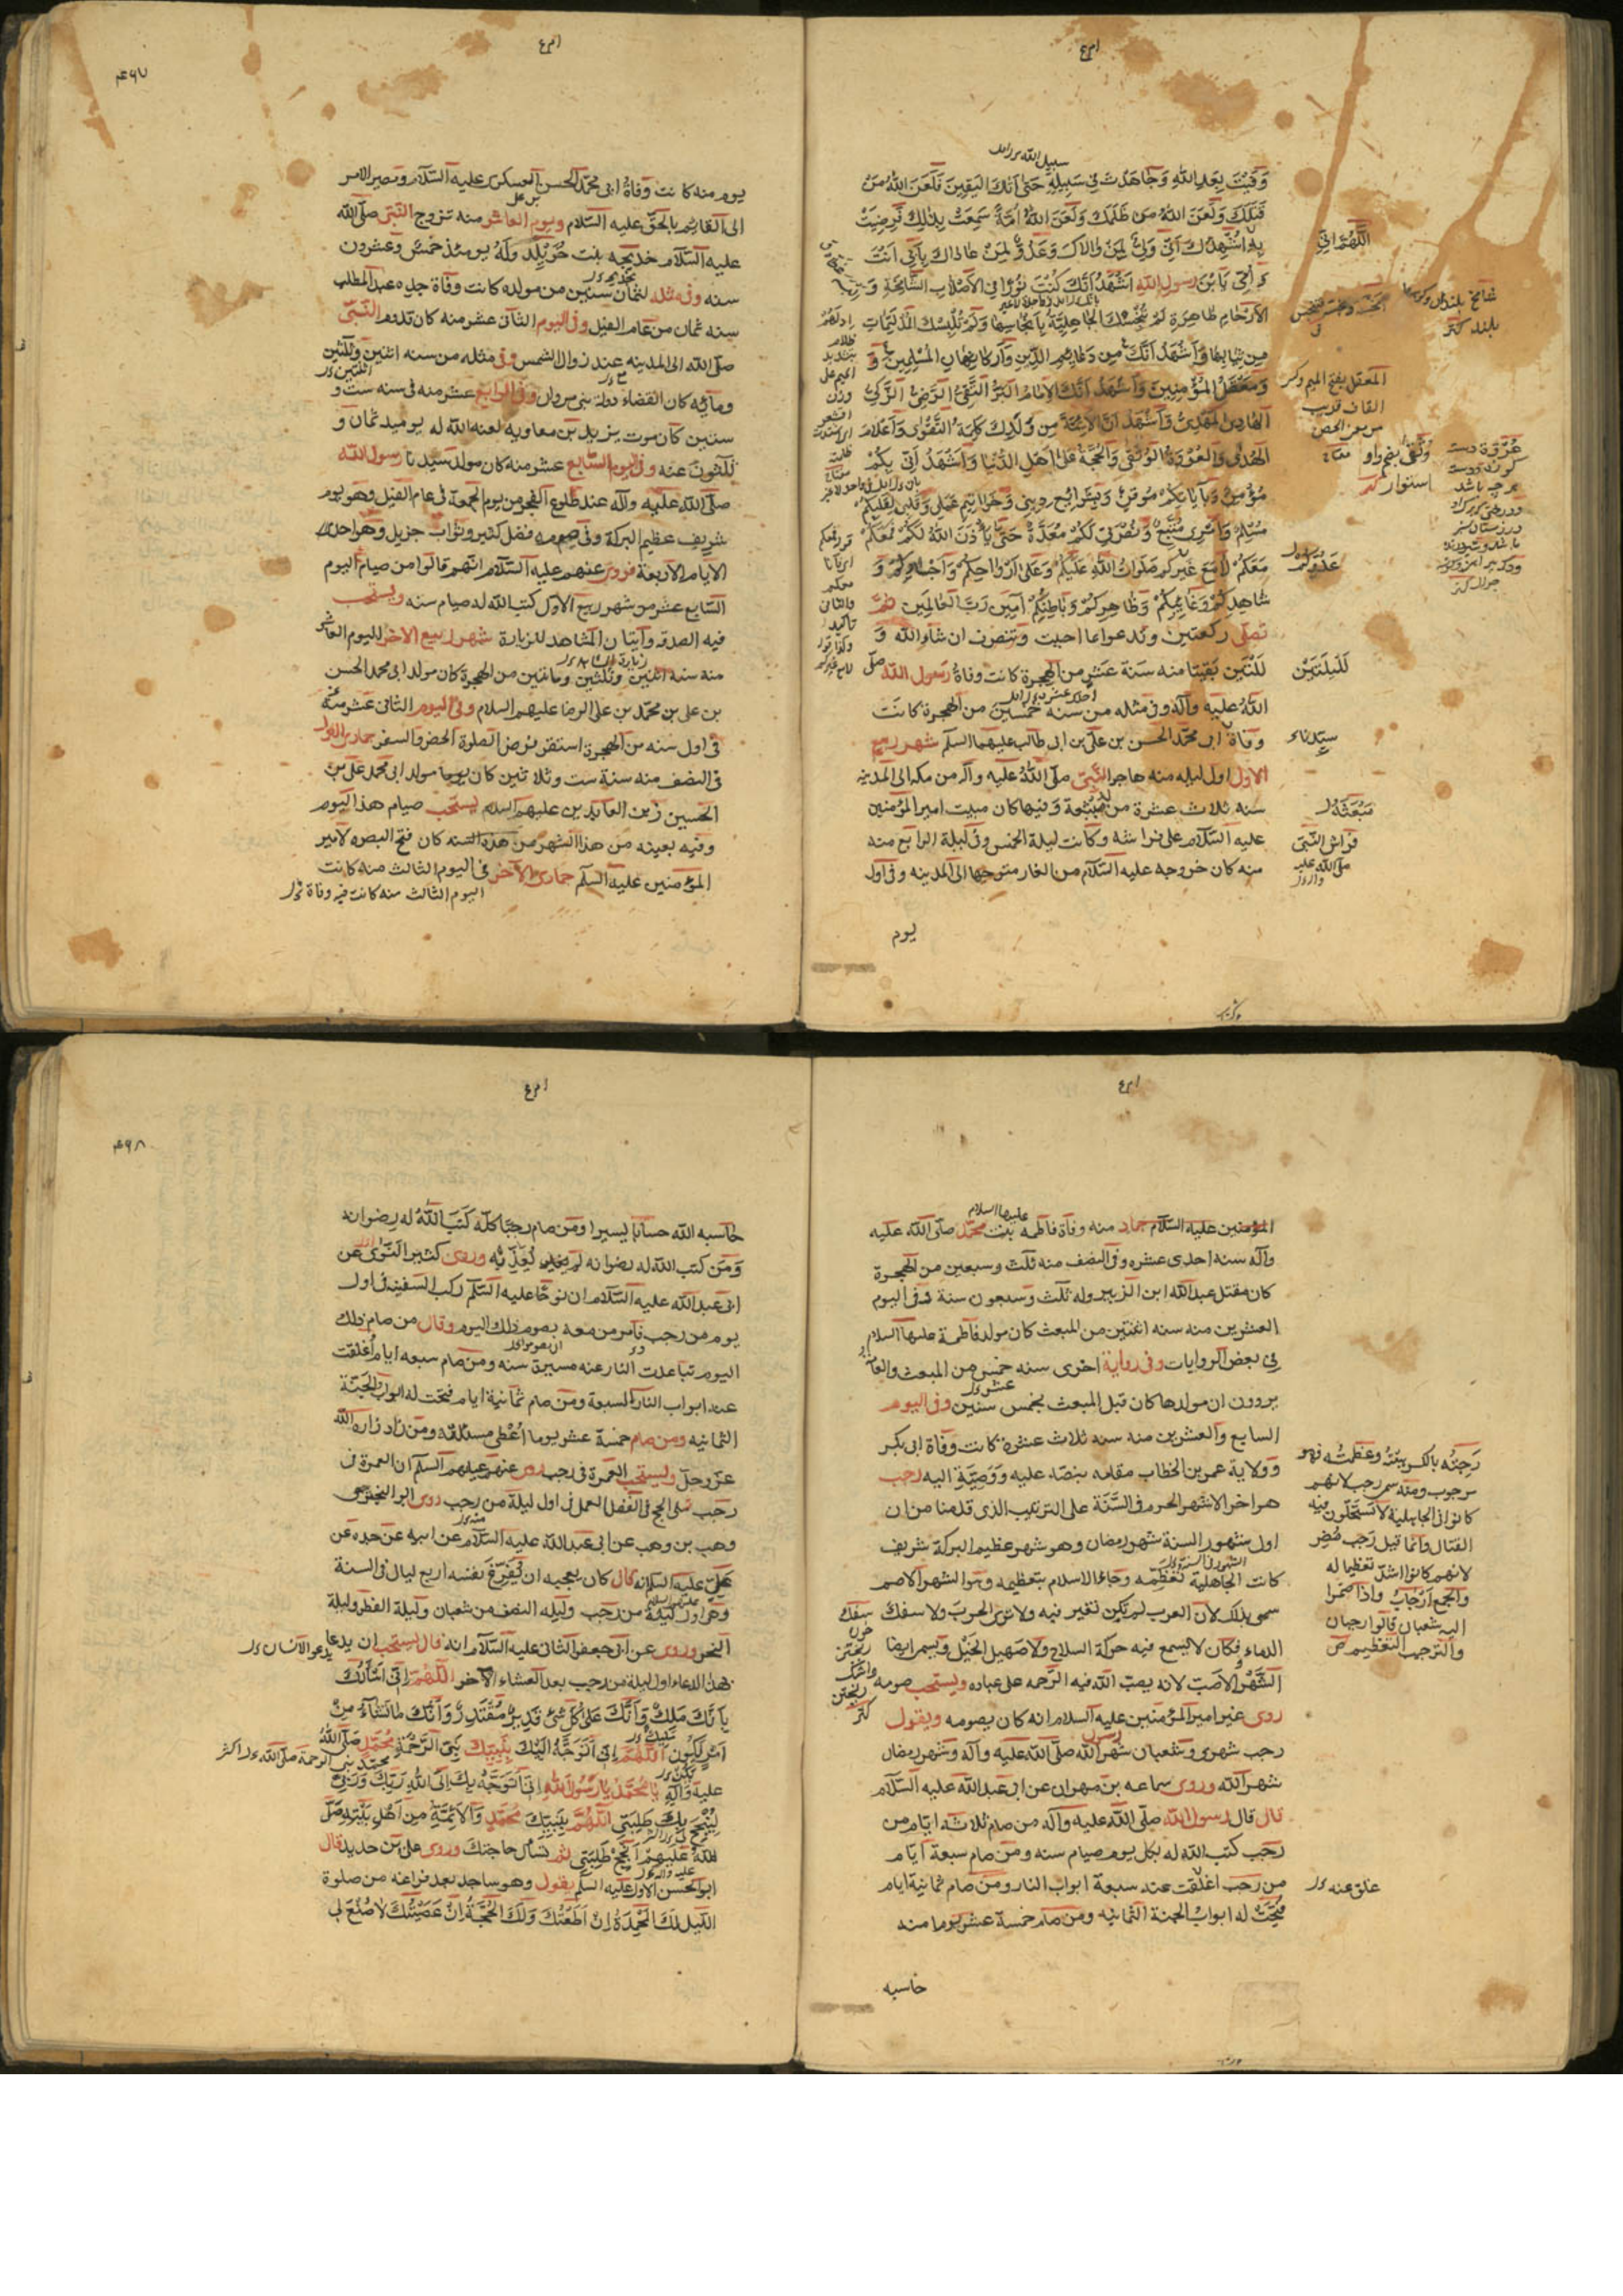 وَفَيْتَ بِعَهْدِ اللّٰهِ وَجَاهَدْتَ فِي سَبِيلِهِ حَتّٰى اَتٰكَ الْيَقِينُ فَلَعَنَ اللّٰهُ مَنْ
قَتَلَكَ وَلَعَنَ اللّٰهُ مَنْ ظَلَمَكَ وَلَعَنَ اللّٰهُ اُمَّةً سَمِعَتْ بِذٰلِكَ فَرَضِيَتْ
بِهِ اُشْهِدُكَ اَنِّي وَلِيٌّ لِمَنْ وَالَاكَ وَعَدُوٌّ لِمَنْ عَادَاكَ بِاَبِي اَنْتَ
وَ اُمِّي يَا بْنَ رَسُولِ اللّٰهِ اَشْهَدُ اَنَّكَ كُنْتَ نُورًا فِي الْاَصْلَابِ الشَّامِخَةِ وَ
الْاَرْحَامِ طَاهِرَةِ لَمْ تُنَجِّسْكَ الْجَاهِلِيَّةُ بِاَنْجَاسِهَا وَلَمْ تُلْبِسْكَ الْمُدْلَهِمَّاتِ
مِنْ ثِيَابِهَا وَاَشْهَدُ اَنَّكَ مِنْ دَعَائِمِ الدِّينِ وَاَرْكَانِ الْمُسْلِمِينَ وَ
وَمَعْقِلِ الْمُؤْمِنِينَ وَاَشْهَدُ اَنَّكَ الْاِمَامُ الْبَرُّ التَّقِيُّ الرَّضِيُّ الزَّكِيُّ
الْهَادِي الْمَهْدِيُّ وَاَشْهَدُ اَنَّ الْاَئِمَّةَ مِنْ وُلْدِكَ كَلِمَةُ التَّقْوٰى وَاَعْلَامُ
الْهُدٰى وَالْعُرْوَةُ الْوُثْقٰى وَالْحُجَّةُ عَلٰى اَهْلِ الدُّنْيَا وَاَشْهَدُ اَنِّي بِكُمْ
مُؤْمِنٌ وَبِاِيَابِكُمْ مُوقِنٌ وَبِشَرَايِعِ دِينِي وَخَوَاتِيمِ عَمَلِي وَقَلْبِي لِقَلْبِكُمْ
مُسَلِّمٌ وَاَمْرِي مُتَّبِعٌ وَنُصْرَتِي لَكُمْ مُعَدَّةٌ حَتّٰى يَأْذَنَ اللّٰهُ لَكُمْ فَمَعَكُمْ
مَعَكُمْ لَا مَعَ غَيْرِكُمْ صَلَوَاتُ اللّٰهِ عَلَيْكُمْ وَعَلٰى اَرْوَاحِكُمْ وَاَجْسَادِكُمْ وَ
شَاهِدِكُمْ وَغَائِبِكُمْ وَظَاهِرِكُمْ وَبَاطِنِكُمْ اٰمِينَ رَبَّ الْعَالَمِينَ ثُمَّ
تصلى ركعتين وتدعوا بما احببت وتنصرف ان شآء الله وَ
لِلَيْلَتَيْنِ
لَلْتَيْنِ بَقِيَتَا منه سَنَة عَشَرٍ من الهجرة كانت وفاةُ رَسول اللّٰه صلّى
اللّٰهُ عليه وآله وفى مثله من سنه خمسين من الهجرة كانت
وفاة ابى محمّد الحسن بن علىّ بن ابى طالب عليهما السلم شهر ربيع
الاول اول ليله منه هاجر النّبىّ صلّى اللّٰهُ عليه وآله من مكه الى المدينه
سنه ثلاث عشرة من وفيها كان مبيت امير المؤمنين
فراش النّبىّ
عليه السّلام على فراشه وكانت ليلة الخميس وفى ليلة الرابع منه
منه كان خروجه عليه السّلام من الغار متوجها الى المدينه وفى اول
يوم
يوم منه كانت وفاةُ ابى محمّد الحسن العسكرى عليه السّلام ومصير الامر
الى القائم بالحقّ عليه السّلام ويوم العاشر منه تزوج النّبىّ صلّى اللّٰه
عليه السّلام خديجه بنت خُوَيْلِد ولَهُ يومئذ خمس وعشرون
سنه وفى مثله لثمان سنين من مولده كانت وفاة جده عبد المطلب
سنه ثمان من عام الفيل وفى اليوم الثانى عشر منه كان قدوم النّبىّ
صلّى اللّٰه الى المدينه عند زوال الشمس وفى مثله من سنه اثنين وثلثين
ومأئه كان انقضاء دولة بنى مروان وفى الرابع عشر منه فى سنه ست و
ستين كان موت يزيد بن معاويه لعنه اللّٰه له يوميد ثمان و
ثلثون سنه وفى اليوم السّابع عشر منه كان مولد سيدنا رسول اللّه
صلّى اللّٰه عليه وآله عند طلوع الفجر من يوم الجمعة فى عام الفيل وهو يوم
شريف عظيم البركة وفى صومه فضل كثير وثواب جزيل وهو احد
الايام الاربعة فروى عنهم عليه السّلام انّهم قالوا من صيام اليوم
السّابع عشر من شهر ربيع الاول كتب اللّٰه له صيام سنه ويستحب
فيه الصدقه واتيان المشاهد للزيارة شهر ربيع الآخر لليوم العاشر
منه سنه اثنين وثلثين ومائتين من الهجرة كان مولد ابى محمد الحسن
بن على بن محمّد بن على الرضا عليهم السلام وفى اليوم الثانى عشر منه
فى اول سنه من الهجرة استقر فرض الصلوة الحضر والسفر جمادى الاول
فى النصف منه سنة ست وثلاثين كان يوما مولد ابى محمد على بن
الحسين زين العابدين عليهم السلام يستحب صيام هذا اليوم
وفيه بعينه من هذا الشهر من هذه السّنه كان فتح البصره لامير
المؤمنين عليه السلم جمادى الآخر فى اليوم الثالث منه كانت
اليوم الثالث منه كانت فيه وفاة
المؤمنين عليه السّلام جماد منه وفاة فاطمه بنت محمّد صلّى اللّٰه عليه
وآله سنه احدى عشره وفى النصف منه ثلث وسبعين من الهجرة
كان مقتل عبد اللّٰه ابن الزبير وله ثلث وسبعون سنة وفى اليوم
العشرين منه سنه اثنتين من المبعث كان مولد فاطمة عليها السلام
فى بعض الروايات وفى رواية اخرى سنه خمس من المبعث والعامّة
يروون ان مولدها كان قبل المبعث بخمس سنين وفى اليوم
السابع والعشرين منه سنه ثلاث عشرة كانت وفاة ابى بكر
وولاية عمر بن الخطاب مقامه بنصّه عليه ووَصِيّة اليه رجب
هو اخر الاشهر الحرم فى السَّنَة على الترتيب الذى قدمنا من ان
اول شهور السنة شهر رمضان وهو شهر عظيم البركة شريف
كانت الجاهلية تعظمه وجاء الاسلام بتعظيمه وهو الشهر الاصم
سمى بذلك لان العرب لم يكن تغير فيه ولا ترى الحرب ولا سفك
الدماء وكان لا يسمع فيه حركة السلاح ولا صهيل الخيل ويسمى ايضا
الشَّهْر الاصَبّ لانه يصب اللّٰه فيه الرّحمه على عباده ويستحب صومه
روى عن امير المؤمنين عليه السلام انه كان يصومه ويقول
رجب شهرى وشعبان شهر اللّٰه صلّى اللّٰه عليه وآله وشهر رمضان
شهر اللّٰه وروى سماعه بن مهران عن ابى عبد اللّٰه عليه السّلام
قال قال رسول اللّٰه صلّى اللّٰه عليه وآله من صام ثلاثه ايّام من
رجب كتب اللّٰه له بكل يوم صيام سنه ومن صام سبعة ايّام
من رجب اغلقت عنه سبعة ابواب النار ومن صام ثمانية ايام
فُتِحَتْ له ابوابُ الجنة الثمانيه ومن صام خمسة عشر يوما منه
حاسبه
رَجِبْتُه بالكسر هِبْتُهُ وعَظَّمْتُه فهو
مرجوب ومنه سمى رجب لانهم
كانوا فى الجاهلية لا يَسْتَحِلّون فيه
القتال وانّما قيل رَجَب مُضَر
لانهم كانوا اشدّ تعظيما له
والجمع اَرْجَابٌ واذا ضمّوا
اليه شعبان قالوا رجبان
والتّرجيب التعظيم ص
حاسبه اللّٰه حسابا يسيرا ومن صام رجبا كلّه كَتَبَ اللّٰهُ له رضوانه
وَمَن كتب اللّٰه له رضوانه لم يُعَذِّبْه وروى كثير النَّوّى عن
ابى عبد اللّٰه عليه السّلام ان نوحًا عليه السّلم ركب السفينه فى اول
يوم من رجب فأمر من معه بصوم ذلك اليوم وقال من صام ذلك
اليوم تباعدت النار عنه مسيرة سنه ومن صام سبعه ايام اُغلقت
عنه ابواب النار السبعة ومن صام ثمانية ايام فتحت له ابواب الجَنّة
الثمانيه ومن صام خمسة عشر يوما اُعْطِىَ مسئلته ومن زاد زاده اللّٰه
عزّ وجلّ ويستحب العمرة فى رجب روى عنهم عليهم السّلم ان العمرة فى
رجب تلى الحج فى الفضل العمل فى اول ليلة من رجب روى ابو البخترى
وهب بن وهب عن ابى عبد اللّٰه عليه السّلام عن ابيه عن جده عن
علىّ عليه السلم انه قال كان يعجبه ان يُفَرِّغَ نفسه اربع ليال فى السنة
وهى اول ليلة من رجب وليله النصف من شعبان وليلة الفطر وليلة
النحر وروى عن ابى جعفر الثانى عليه السّلام انه قال يستحب ان يدعا
بهذا الدعاء اول ليلة من رجب بعد العشاء الآخر اَللّٰهُمَّ اِنِّي اَسْأَلُكَ
بِاَنَّكَ مَلِكٌ وَاَنَّكَ عَلٰى كُلِّ شَىْءٍ قَدِيرٌ مُقْتَدِرٌ وَاَنَّكَ مَا تَشَآءُ مِنْ
اَمْرٍ يَكُونُ اَللّٰهُمَّ اِنِّي اَتَوَجَّهُ اِلَيْكَ بِنَبِيِّكَ نَبِيِّ الرَّحْمَةِ مُحَمَّدٍ صَلَّى اللّٰهُ
عليه وآلهِ يَا مُحَمَّدُ يَا رَسُولَ اللّٰهِ اِنِّي اَتَوَجَّهُ بِكَ اِلَى اللّٰهِ رَبِّكَ وَرَبِّي
لِيُنْجِحَ بِكَ طَلِبَتِي اَللّٰهُمَّ بِنَبِيِّكَ مُحَمَّدٍ وَالْاَئِمَّةِ مِنْ اَهْلِ بَيْتِهِ صَلَّى
اللّٰهُ عَلَيْهِمْ اَنْجِحْ طَلِبَتِي ثم تسأل حاجتك وروى على بن حديد قال
ابو الحسن الاول عليه السلم يقول وهو ساجد بعد فراغه من صلوة
الليل لَكَ الْمَحْمِدَةُ اِنْ اَطَعْتُكَ وَلَكَ الْحُجَّةُ اِنْ عَصَيْتُكَ لَا صُنْعَ لِي